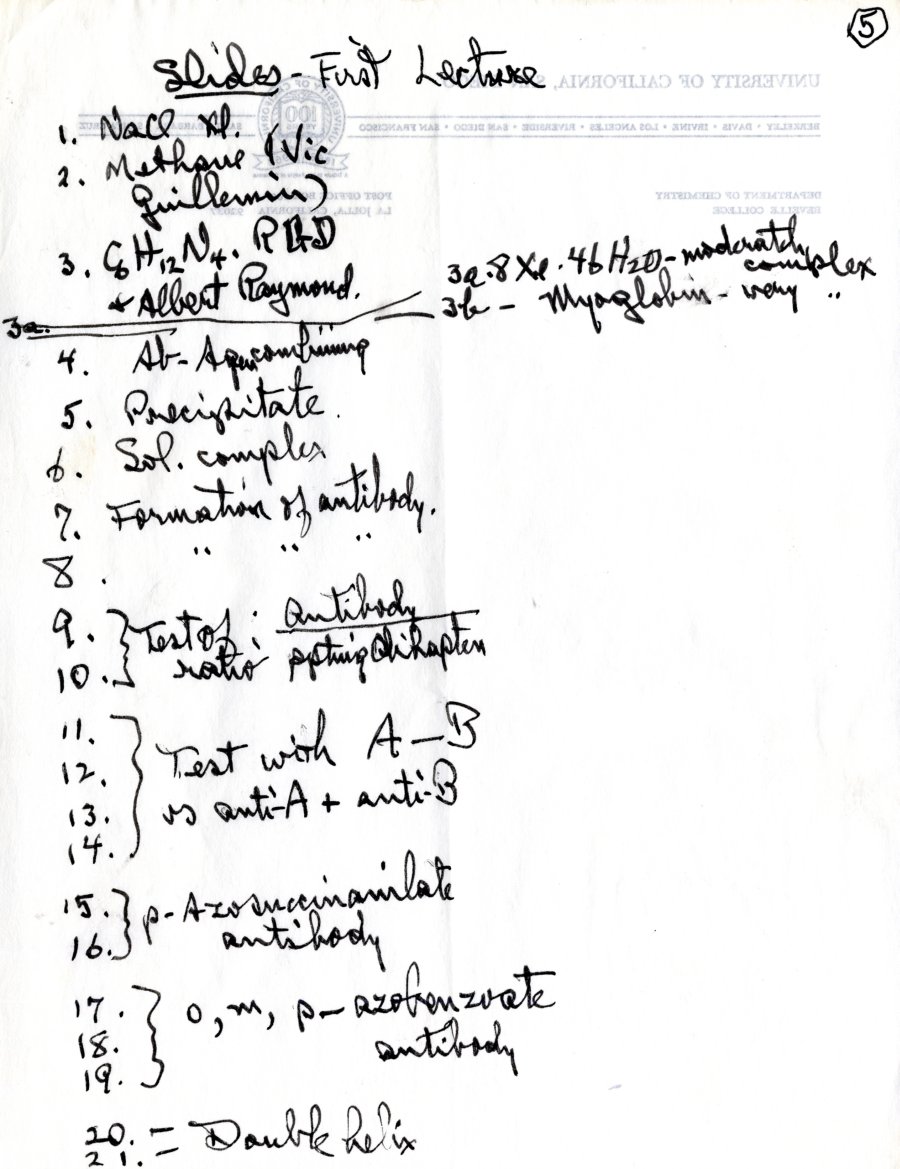 5
Slides - First Lecture
1. NaCl xl.
2. Methane (Vic
Guillemin)
3. C6H12N4. RGD
+ Albert Raymond.
3a. 8 Xe · 46 H2O - moderately
complex
3b - Myoglobin - very "
3a.
4. Ab - Ag combining
5. Precipitate.
6. Sol. complex
7. Formation of antibody.
8. " " "
9. } Test of : antibody
10. ratio pptingdihapten
11.
12. } Test with A — B
13. vs anti-A + anti-B
14.
15. } p-Azosuccinanilate
16. antibody
17. } o, m, p - azobenzoate
18. antibody
19.
20. = Double helix
21.
UNIVERSITY OF CALIFORNIA, SAN DIEGO
BERKELEY • DAVIS • IRVINE • LOS ANGELES • RIVERSIDE • SAN DIEGO • SAN FRANCISCO
DEPARTMENT OF CHEMISTRY
REVELLE COLLEGE
POST OFFICE
LA JOLLA, CALIFORNIA 92037